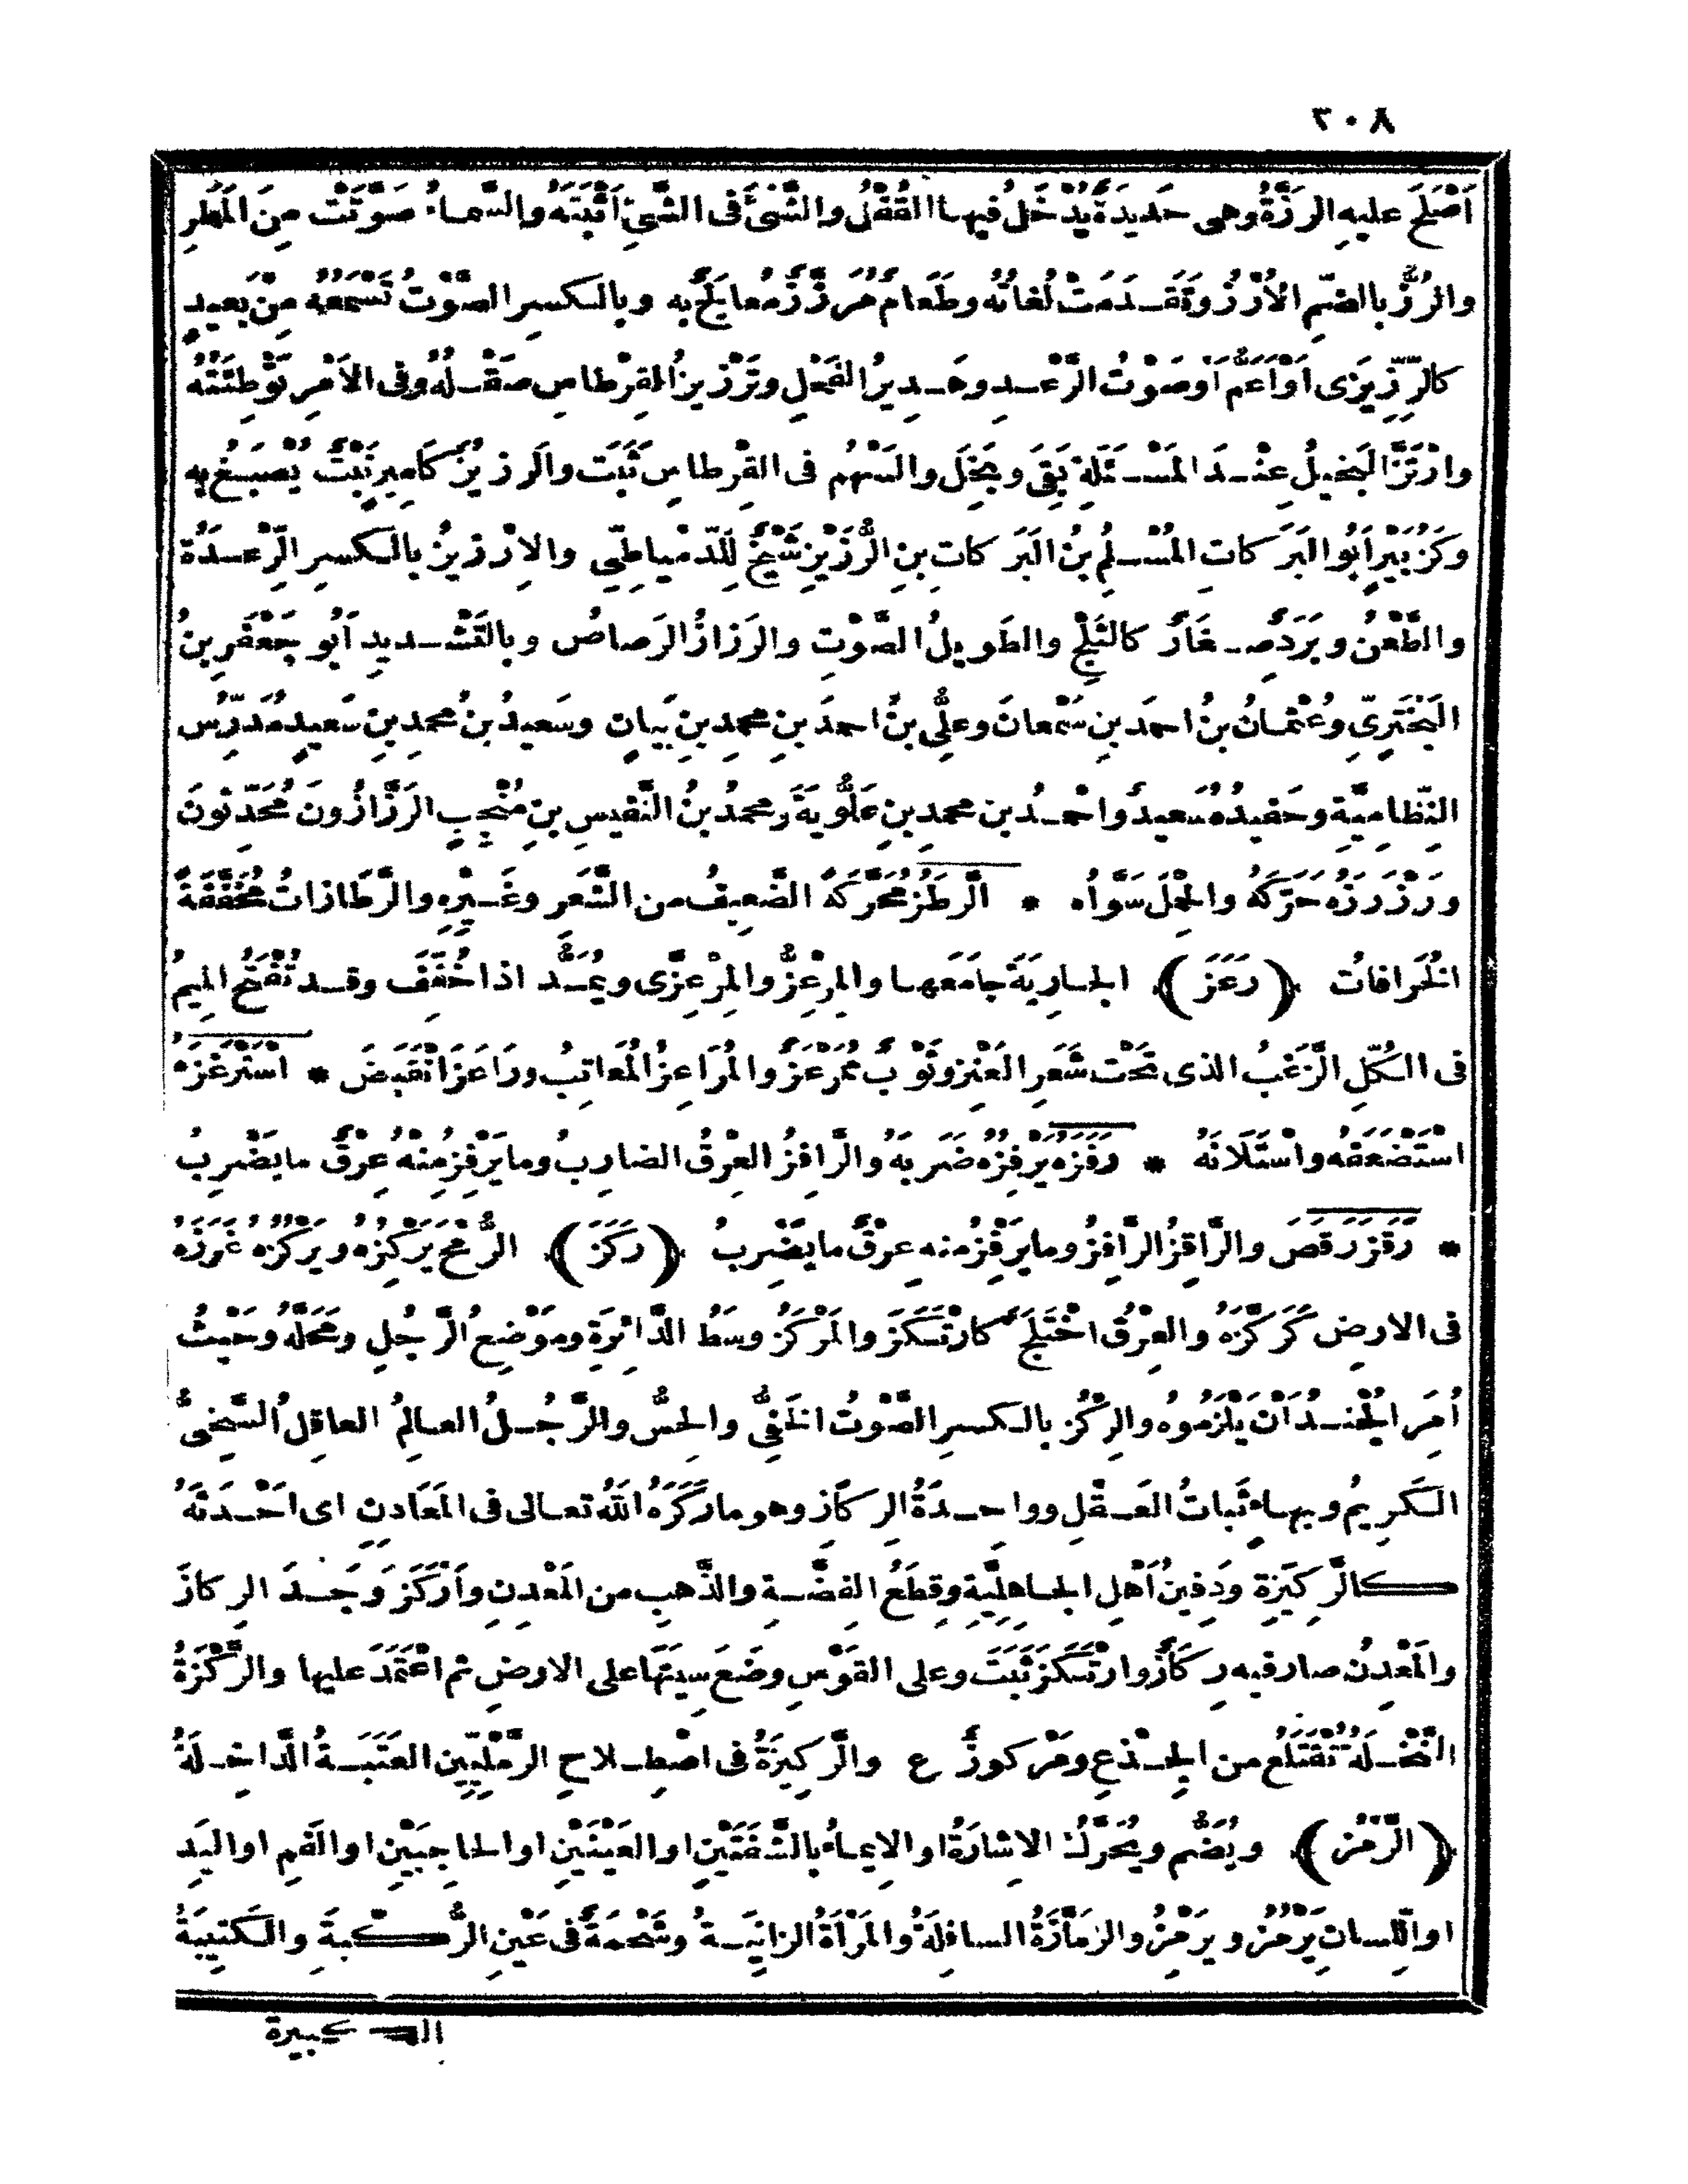 ٣٠٨
اَصْلَحَ عليهِ الرَزَّةُ وهى حَديدَةٌ يُدْخَلُ فيها القُفْلُ والشَّئَ فى الشَّئِ اَثْبَتَهُ والسَّماءُ صَوَّتَتْ مِنَ المَطَرِ
والرُزُّ بالضَمِّ الاُرْزُ وتَقَدَمَتْ لُغاتُه وطَعامٌ مُرَزَّزٌ مُعالَجٌ به وبالكسرِ الصَّوْتُ تَسْمَعُهُ مِنْ بَعيدٍ
كالرِّزِّيزَى اَوْ اَعَمُّ اَوصَوْتُ الرَّعْدِ وهَديرُ الفَحْلِ وتَرْزيزُ القِرْطاسِ صَقْلُهُ وفى الاَمْرِ تَوْطِئَتُهُ
وارْتَزَّ البَخيلُ عِنْدَ المَسْئَلَةِ بَقِىَ وبَخِلَ والسَهْمُ فى القِرْطاسِ ثَبَتَ والرَزيزُ كَاَميرٍ نَبْتٌ يُصْبَغُ بِهِ
وكَزُبَيْرٍ اَبُو البَرَكاتِ المُسْلِمُ بنُ البَرَكاتِ بنِ الرُّزَيْزِ شَيْخٌ لِلدّمْياطِيِّ والاِرْزيزُ بالكسرِ الرِّعْدَةُ
والطَّعْنُ وبَرَدٌ صِغَارٌ كالثَّلْجِ والطَويلُ الصَّوْتِ والرَزازُ الرَصاصُ وبالتَشْديدِ اَبُو جَعْفَرِ بنُ
البَخْتَرِىِّ وعُثْمانُ بنُ احمدَ بنِ سَمْعانَ وعلىُّ بنُ احمدَ بنِ محمدِ بنِ بَيانٍ وسَعيدُ بنُ محمدِ بنِ سَعيدٍ مُدَرِّسُ
النِّظامِيَّةِ وحَفيدُهُ سَعيدٌ واحمدُ بن محمدِ بنِ عَلُّويَةَ ومحمدُ بنُ النَّفيسِ بنِ مُنْجِبٍ الرَزَّازُونَ مُحَدِّثونَ
ورَزْرَزَهُ حَرَّكَهُ والحِمْلَ سَوَّاهُ * الرَّطَزُ مُحَرَّكَةً الضَّعيفُ من الشَّعَرِ وغَيْرِهِ والرَّطَازاتُ مُخَفَّفَةً
الخُرافاتُ ﴿رَعَزَ﴾ الجاريَةَ جامَعَها والمِرْعِزُّ والمِرْعِزَّى ويُمَدُّ اذا خُفِّفَ وقد تُفْتَحُ الميمُ
فى الكُلِّ الزَّغَبُ الذى تَحْتَ شَعَرِ العَنْزِ وثَوْبٌ مُمَرْعَزٌ والمُرَاعِزُ المُعاتِبُ ورَاعَزَ انْقَبَضَ * اسْتَرْغَزَهُ
اسْتَضْعَفَهُ واسْتَلَانَهُ * رَفَزَهُ يَرْفِزُهُ ضَرَبَهُ والرَّافِزُ العِرْقُ الضارِبُ وما يَرْفِزُ مِنْهُ عِرْقٌ ما يَضْرِبُ
* رَقَزَ رَقَصَ والرَّاقِزُ الرَّافِزُ وما يَرْقِزُ منهِ عِرْقٌ ما يَضْرِبُ ﴿رَكَزَ﴾ الرُّمْحَ يَرْكِزُهُ ويَرْكُزُهُ غَرَزَهُ
فى الارضِ كَرَكَّزَهُ والعِرْقُ اخْتَلَجَ كارْتَكَزَ والمَرْكَزُ وسَطُ الدَّائرَةِ ومَوْضِعُ الرَّجُلِ ومَحَلُّهُ وحَيْثُ
اُمِرَ الجُنْدُ اَنْ يَلْزَمُوهُ والرِكْزُ بالكسرِ الصَّوْتُ الخَفِىُّ والحِسُّ والرَّجُلُ العالِمُ العاقِلُ السَّخِىُّ
الكَرِيمُ وبِهاءٍ ثَباتُ العَقْلِ وواحِدَةُ الرِكَازِ وهو ما رَكَزَهُ اللهُ تعالى فى المَعَادِنِ اى اَحْدَثَهُ
كالرَّكيزَةِ ودَفِينُ اَهْلِ الجاهِلِيَّةِ وقِطَعُ الفِضَّةِ والذَّهبِ من المَعْدِنِ واَرْكَزَ وَجَدَ الرِكازَ
والمَعْدِنُ صار فيه رِكَازٌ وارْتَكَزَ ثَبَتَ وعلى القَوْسِ وضَعَ سِيَتَها على الارضِ ثم اعْتَمَدَ عليها والرَّكْزَةُ
النَّخْلَةُ تُقْتَلَعُ من الجِذْعِ ومَرْكوزٌ ع والرَّكيزَةُ فى اصْطِلاحِ الرَّمْلِيِّين العَتَبَةُ الدَّاخِلَةُ
﴿الرَّمْزُ﴾ ويُضَّم ويُحَرَّكُ الاِشارَةُ او الاِيماءُ بالشَّفَتَيْنِ او العَيْنَيْنِ او الحاجِبَيْنِ او الفَمِ او اليَدِ
او اللِّسانِ يَرْمُزُ ويَرْمِزُ والرَمَّازَةُ السافِلَةُ والمَرْاَةُ الزانِيَةُ وشَحْمَةٌ فى عَيْنِ الرُّكْبَةِ والكَتيبَةُ
الكبيرة